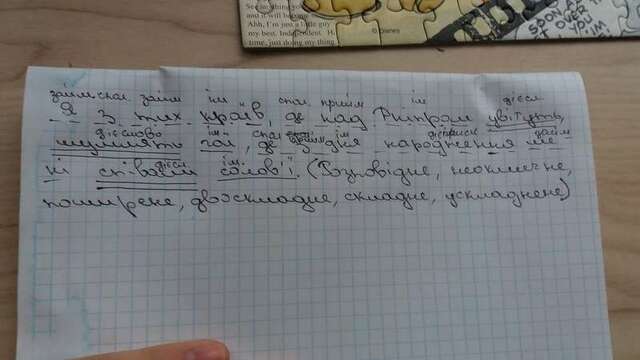 See anything you
and it will become
Ah, I'm just a little guy
my best. Independent H.
time, just doing my thing
© Disney
SPOON
OVER
YOU
займ спол займ ім спол прийм ім дієсл
Я з тих країв, де над Дніпром цвітуть,
дієслово ім спол ім займ
шумлять гаї, де з дня народження ме
дієсл ім
ні співали солов'ї. (Розповідне, неоклично,
поширене, двоскладне, складне, ускладнене)